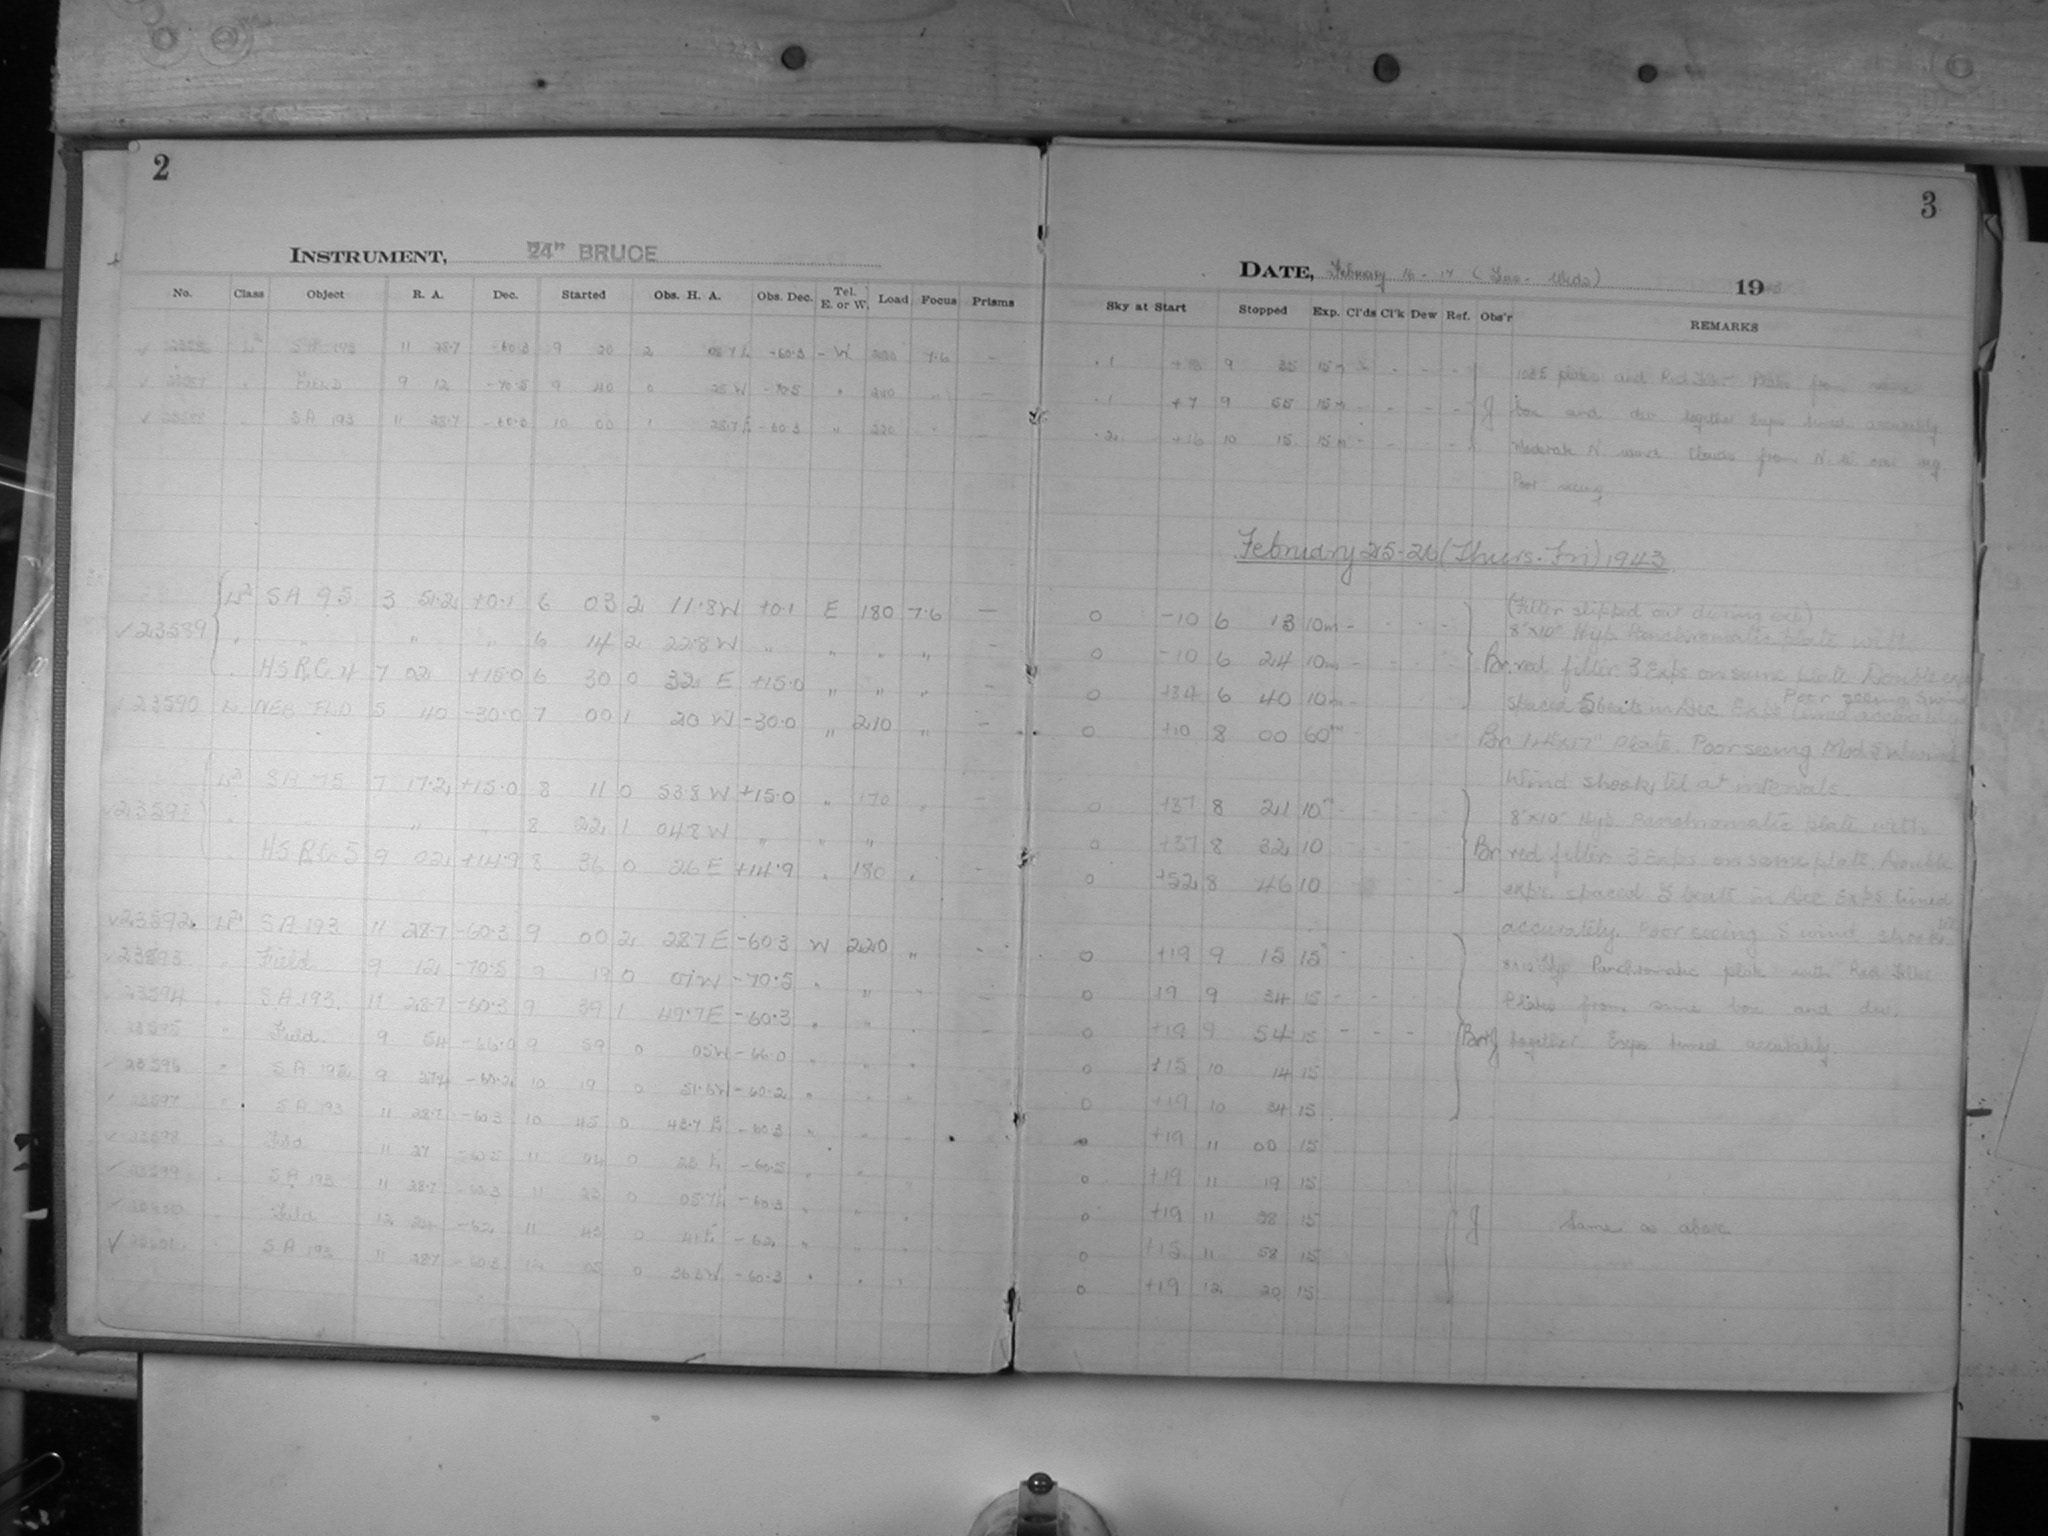 2
INSTRUMENT, "24" BRUCE
No. Class Object R. A. Dec. Started Obs. H. A. Obs. Dec. Tel. E. or W. Load Focus Prisms
SA 193 11 28.7 -60.3 9 20 2 -60.3 W 7.6 —
FIELD 9 12 -70.5 9 40 0 25 W -70.5 " —
SA 193 11 28.7 10 00 1 28.7 E -60.3 " 220 " —
L² SA 95 3 51.2 +0.1 6 03 2 11.8 W +0.1 E 180 7.6 —
✓23589 " " " " 6 14 2 22.8 W " " " " —
" H.S.R.C. 4 7 02 +15.0 6 30 0 32 E +15.0 " " " —
23590 L NEB FLD 5 40 -30.0 7 00 1 20 W -30.0 " 210 " —
L² SA 75 7 17.2 +15.0 8 11 0 53.8 W +15.0 " 170 " —
" " " 8 22 1 04.8 W " " "
" 9 02 +14.9 8 36 0 26 E +14.9 " 180 " —
✓23592 L² SA 193 11 28.7 -60.3 9 00 2 28.7 E -60.3 W 220 " —
✓23593 " Field 9 12 -70.5 9 19 0 07 W -70.5 " " " —
23594 " SA 193 11 28.7 -60.3 9 39 1 49.7 E -60.3 " " " —
23595 " Field 9 54 -66.0 9 59 0 05 W -66.0 " " "
✓ 23596 " SA 192 9 -60.2 10 19 0 51.6 W -60.2 " " "
✓ 23597 " SA 193 11 28.7 -60.3 10 45 0 43.7 E -60.3 " " "
✓ 23598 " Field 11 27 -60.5 11 04 0 23 E -60.5 " "
✓ 23599 " SA 193 11 28.7 -60.3 11 23 0 05.7 E -60.3 " " "
✓ " Field 12 24 -62 11 43 0 41 E -62 " " "
✓ SA 193 11 28.7 -60.3 12 05 0 -60.3 " " "
3
DATE, February 16 - 17 (Tues - Weds) 19
Sky at Start Stopped Exp. Cl'ds Cl'k Dew Ref. Obs'r REMARKS
.1 9 35 15 m plates and Red Filter Plates from same
.1 +7 9 55 15 m J box and dev. together Exps timed accurately
.2 +16 10 15 15 m Moderate N. wind Clouds from N.W. over
Poor seeing
February 25-26 (Thurs-Fri) 1943
(Filter slipped out during exp)
0 -10 6 13 10m - 8"x10" Hyp. Panchromatic plate with
0 -10 6 24 10m - Br. red filter 3 Exps on same plate Double exp
0 +34 6 40 10m - spaced 5 beats in Dec Exps timed accurately Poor seeing S wind
0 +10 8 00 60m - Br. 14"x17" Plate. Poor seeing Mod S wind
Wind shook tel at intervals.
0 +37 8 21 10m 8"x10" Hyp. Panchromatic plate with
0 +37 8 32 10 Br. red filter 3 Exps. on same plate. Double
0 +52 8 46 10 exps. spaced 5 beats in Dec Exps timed
accurately. Poor seeing S wind shook tel
0 +19 9 15 15 8x10 Hyp. Panchromatic plate with Red Filter
0 19 9 34 15 Plates from same box and dev.
0 +19 9 54 15 Br+J together. Exps timed accurately.
0 +15 10 14 15
0 +19 10 34 15
0 +19 11 00 15
0 +19 11 19 15
0 +19 11 38 15 J Same as above
0 +15 11 58 15
0 +19 12 20 15